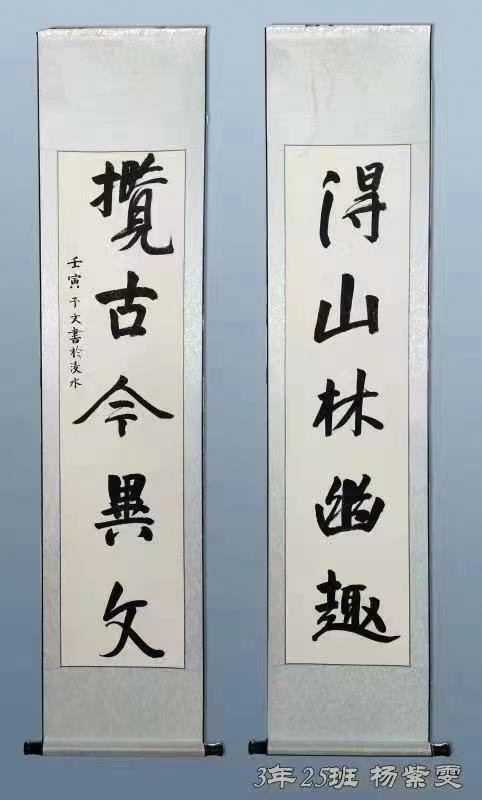 得山林幽趣
攬古今異文
壬寅子文書於淩水
3年25班 杨紫雯